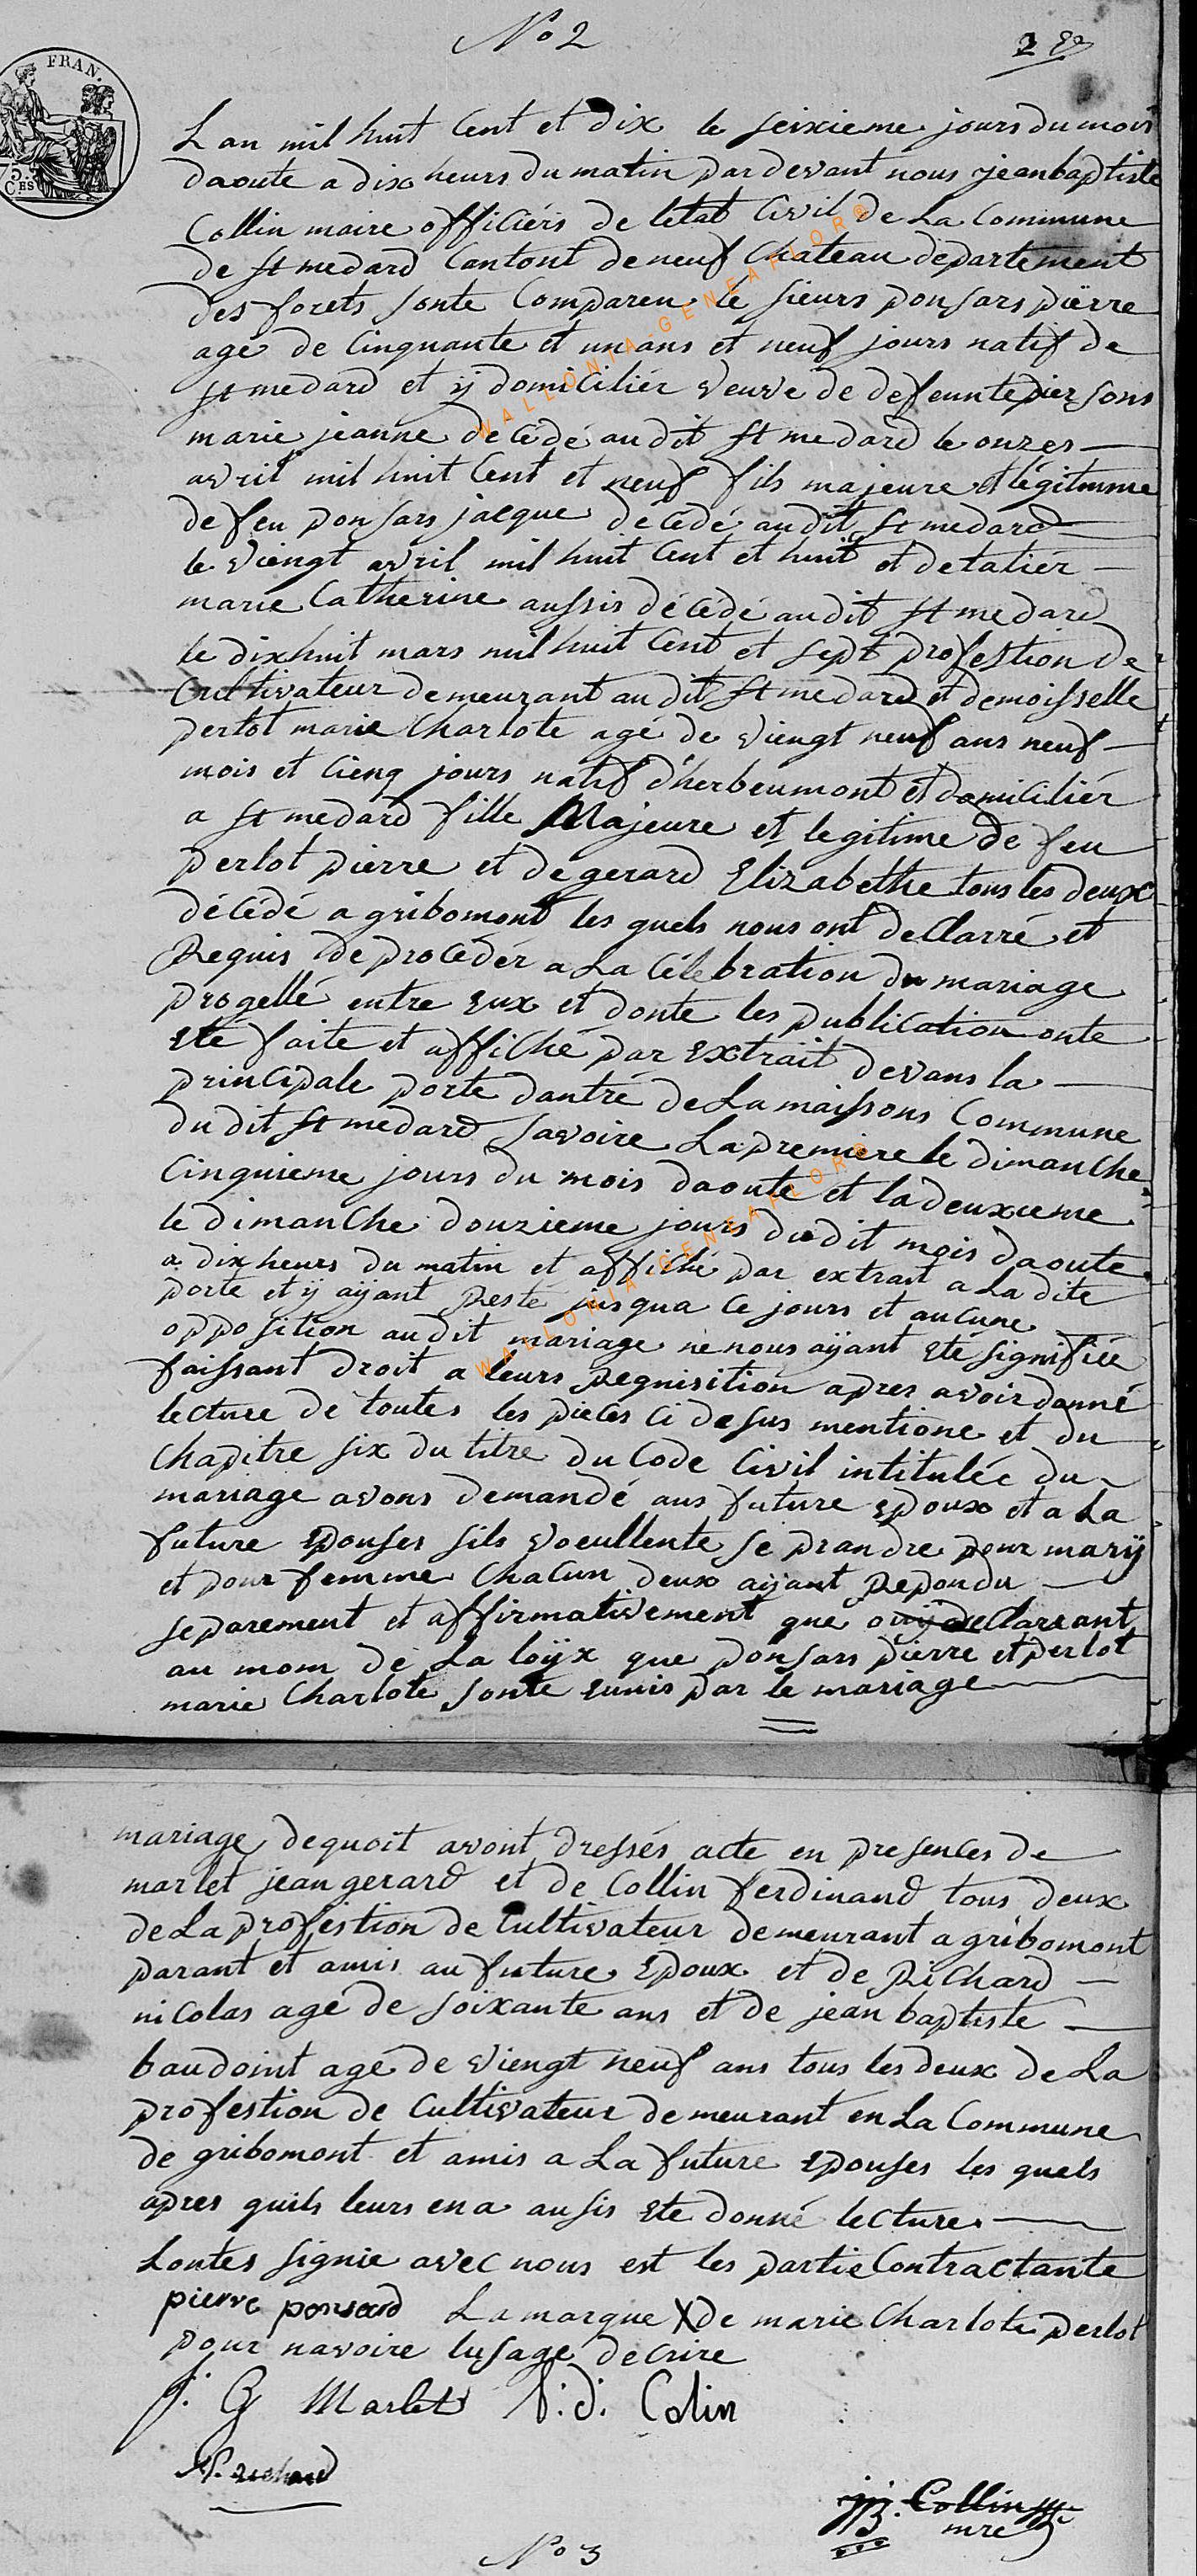 No 2
2 Ee
FRAN.
75.
C.ES
Lan mil huit Cent et dix le seixieme jours du mois
daoute a dix heurs du matin par devant nous jean baptiste
Collin maire officiérs de letat Civil de La Commune
de st medard Cantont de neuf Chateau departement
des forets sonte Compareu le sieurs ponsars piërre
agé de Cinquante et un ans et neuf jours natif de
st medard et ÿ domiciliér veuve de defeunte piersons
marie jeanne decédé au dit st medard le onzes
avril mil huit Cent et neuf fils majeure et légitimme
de feu ponsars jacque decédé au dit st medard
le viengt avril mil huit Cent et huit et de taliér
marie Catherine aussis décédé au dit st medard
le dixhuit mars mil huit Cent et sept profestion de
Cultivateur demeurant au dit st medard et demoisselle
perlot marie Charlote agé de viengt neuf ans neuf
mois et Cienq jours natif d'herbeumont et domiciliér
a st medard fille Majeure et legitime de feu
perlot pierre et de gerard Elizabethe tous les deux
décédé a gribomont les quels nous ont decllarré et
Requis de procédér a La Célebration du mariage
progellé entre Eux et donte les publication onte
Ete faite et affiché par Extrait devans la
principale porte dantré de La maissons Commune
du dit st medard savoire La premiere le dimanche
Cinquieme jours du mois daoute et la deuxieme
le dimanche douzieme jours du dit mois daoute
a dix heurs du matin et affiché par extrait a La dite
porte et ÿ aÿant Resté jusqua Ce jours et aucune
opposition au dit mariage ne nous aÿant Eté signifiée
faissant droit a leurs Requisition apres avoir donné
lecture de toutes les pieces ci desus mentione et du
Chapitre six du titre du Code Civil intitulée du
mariage avons demandé aus future Epoux et a La
future Epouses sils voeullente se prandre pour marÿ
et pour femme Chacun deux aÿant Repondu
separement et affirmativement que ouÿ decllarrant
au mom de La loÿx que ponsars pierre et perlot
marie Charlote sonte eunis par le mariage
mariage dequoit avont dressés acte en presences de
marlet jean gerard et de Collin ferdinand tous deux
de La profestion de Cultivateur demeurant a gribomont
parant et amis au future Epoux et de Richard
nicolas agé de soixante ans et de jean baptiste
baudoint agé de viengt neuf ans tous les deux de La
profestion de Cultivateur demeurant en La Commune
de gribomont et amis a La future Epouses les quels
apres quils leurs en a ausis Ete donné lecture
Lontes signie avec nous est les partie Contractante
pierre ponsard La marque X de marie Charlote perlot
pour navoire lusage decrire
j. G Marlet f. d. Colin
N. richard
jB. Collin
mre
No 3
WALLONIA-GENEAFLOR®
WALLONIA-GENEAFLOR®